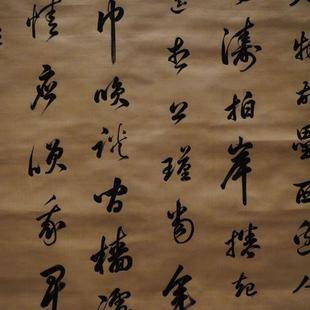 物故壘西邊人
濤拍岸捲起
想公瑾當年
巾咲談間檣櫓
情應咲我早